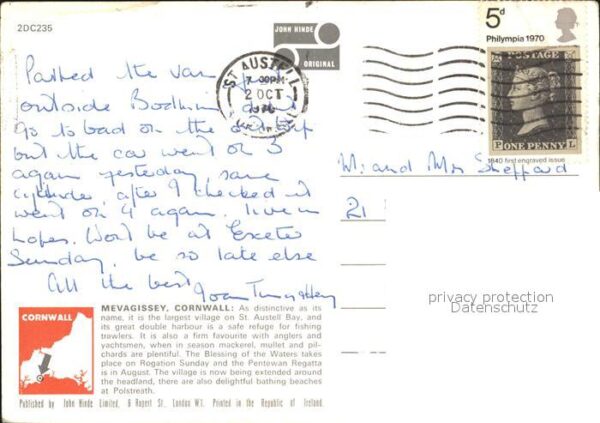 2DC235
JOHN HINDE
ORIGINAL
5d
Philympia 1970
POSTAGE
ONE PENNY
P L
1840 first engraved issue
ST AUSTELL
2 OCT
1970
Parked the van
outside Bodmin
go to bad on the
but the car went on 3
again yesterday, same
cylinder, after I checked it
went on 4 again. Live in
hopes. Wont be at Exeter
Sunday, be so late else
All the best
Joan
M. and Mrs Sheppard
21
privacy protection
Datenschutz
CORNWALL
MEVAGISSEY, CORNWALL: As distinctive as its
name, it is the largest village on St. Austell Bay, and
its great double harbour is a safe refuge for fishing
trawlers. It is also a firm favourite with anglers and
yachtsmen, when in season mackerel, mullet and pil-
chards are plentiful. The Blessing of the Waters takes
place on Rogation Sunday and the Pentewan Regatta
is in August. The village is now being extended around
the headland, there are also delightful bathing beaches
at Polstreath.
Published by John Hinde Limited, 6 Regent St., London W1. Printed in the Republic of Ireland.